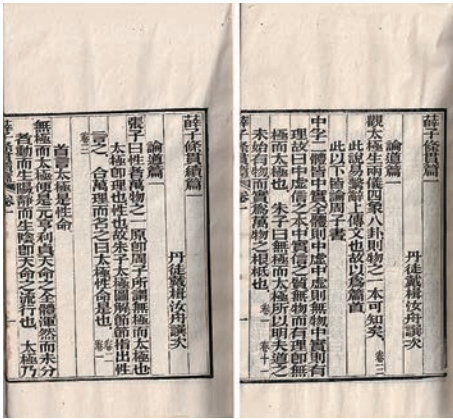 薛子條貫篇一
丹徒戴楫汝舟譔次
論道篇一
觀太極生兩儀四象八卦則物之一本可知矣 卷三
此說易繫辭上傳文也故以爲篇首
此以下皆論周子書
中孚二體皆中實全體則中虛中虛則無物中實則有
理故曰中虛信之本中實信之質無物而有理卽無
極而太極也 朱子曰無極而太極所以明夫道之
未始有物而實爲萬物之根柢也 卷一 卷十一
薛子條貫篇 卷一 一
薛子條貫續篇一
丹徒戴楫汝舟譔次
論道篇一
張子曰性者萬物之一原卽周子所謂無極而太極也
太極卽理也性也故朱子太極圖解節節指出性 卷二
言之 合萬理而名之曰太極性命是也 卷一
卷三
首言太極是性命
無極而太極便是元亨利貞天命之全體渾然而未分
者動而生陽靜而生陰卽天命之流行也 太極乃
薛子條貫續篇 卷一 一